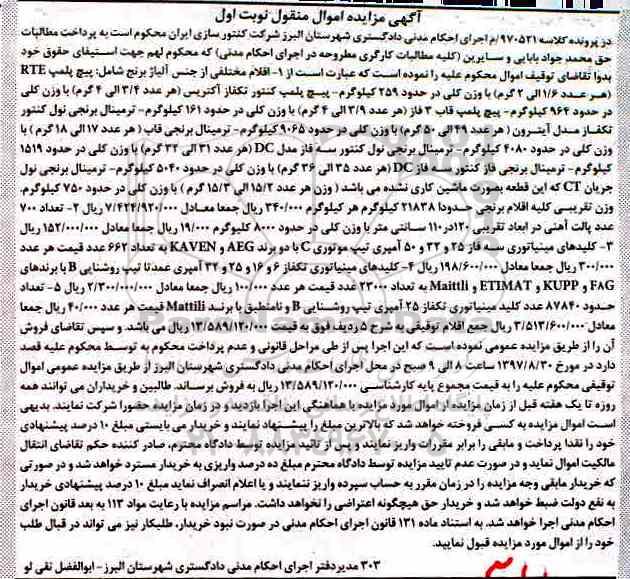 آگهی مزایده اموال منقول نوبت اول
در پرونده کلاسه ۹۷۰۵۲۱/م اجرای احکام مدنی دادگستری شهرستان البرز شرکت کنتور سازی ایران محکوم است به پرداخت مطالبات
حق محمد جواد بابایی و سایرین (کلیه مطالبات کارگری مطروحه در اجرای احکام مدنی) که محکوم لهم جهت استیفای حقوق خود
بدوا تقاضای توقیف اموال محکوم علیه را نموده است که عبارت است از ۱- اقلام مختلفی از جنس آلیاژ برنج شامل: پیچ پلمپ RTE
(هر عدد ۱/۶ الی ۲ گرم) با وزن کلی در حدود ۲۵۹ کیلوگرم- پیچ پلمپ کنتور تکفاز آکتریس (هر عدد ۳/۴ الی ۴ گرم) با وزن کلی
در حدود ۹۶۴ کیلوگرم- پیچ پلمپ قاب ۳ فاز (هر عدد ۳/۹ الی ۴ گرم) با وزن کلی در حدود ۱۶۱ کیلوگرم- ترمینال برنجی نول کنتور
تکفاز مدل آیترون (هر عدد ۴۹ الی ۵۰ گرم) با وزن کلی در حدود ۹۰۶۵ کیلوگرم- ترمینال برنجی قاب (هر عدد ۱۷ الی ۱۸ گرم) با
وزن کلی در حدود ۴۰۸۰ کیلوگرم- ترمینال برنجی نول کنتور سه فاز مدل DC (هر عدد ۳۱ الی ۳۲ گرم) با وزن کلی در حدود ۱۵۱۹
کیلوگرم- ترمینال برنجی فاز کنتور سه فاز DC (هر عدد ۳۵ الی ۳۶ گرم) با وزن کلی در حدود ۵۰۴۰ کیلوگرم- ترمینال برنجی نول
جریان CT که این قطعه بصورت ماشین کاری نشده می باشد (وزن هر عدد ۱۵/۲ الی ۱۵/۳ گرم) با وزن کلی در حدود ۷۵۰ کیلوگرم.
وزن تقریبی کلیه اقلام برنجی حدودا ۲۱۸۳۸ کیلوگرم هر کیلوگرم ۳۴۰/۰۰۰ ریال جمعا معادل ۷/۴۲۴/۹۲۰/۰۰۰ ریال ۲- تعداد ۷۰۰
عدد پالت آهنی در ابعاد تقریبی ۱۲۰در۱۱۰ سانتی متر با وزن کلی در حدود ۸۰۰۰ کلیوگرم ۱۹/۰۰۰ ریال جمعا معادل ۱۵۲/۰۰۰/۰۰۰ ریال
۳- کلیدهای مینیاتوری سه فاز ۲۵ و ۳۲ و ۵۰ آمپری تیپ موتوری C با دو برند AEG و KAVEN به تعداد ۶۶۲ عدد قیمت هر عدد
۳۰۰/۰۰۰ ریال جمعا معادل ۱۹۸/۶۰۰/۰۰۰ ریال ۴- کلیدهای مینیاتوری تکفاز ۶ و ۱۶ و ۲۵ و ۳۲ آمپری عمدتا تیپ روشنایی B با برندهای
FAG و KUPP و ETIMAT و Maittli به تعداد ۲۳۰۰۰ عدد قیمت هر عدد ۱۰۰/۰۰۰ ریال جمعا معادل ۲/۳۰۰/۰۰۰/۰۰۰ ریال ۵- تعداد
حدود ۸۷۸۴۰ عدد کلید مینیاتوری تکفاز ۲۵ آمپری تیپ روشنایی B و نامنطبق با برند Mattili قیمت هر عدد ۴۰/۰۰۰ ریال جمعا
معادل ۳/۵۱۳/۶۰۰/۰۰۰ ریال جمع اقلام توقیفی به شرح ۵ ردیف فوق به قیمت ۱۳/۵۸۹/۱۲۰/۰۰۰ ریال می باشد. و سپس تقاضای فروش
آن را از طریق مزایده عمومی نموده است که این اجرا پس از طی مراحل قانونی و عدم پرداخت محکوم به توسط محکوم علیه قصد
دارد در مورخ ۱۳۹۷/۸/۳۰ ساعت ۸ الی ۹ صبح در محل اجرای احکام مدنی دادگستری شهرستان البرز از طریق مزایده عمومی اموال
توقیفی محکوم علیه را به قیمت مجموع پایه کارشناسی ۱۳/۵۸۹/۱۲۰/۰۰۰ ریال به فروش برساند. طالبین و خریداران می توانند همه
روزه تا یک هفته قبل از زمان مزایده از اموال مورد مزایده با هماهنگی این اجرا بازدید و در زمان مزایده حضورا شرکت نمایند. بدیهی
است اموال مزایده به کسی فروخته خواهد شد که بالاترین مبلغ را پیشنهاد نمایند و خریدار می بایستی مبلغ ۱۰ درصد پیشنهادی
خود را نقدا پرداخت و مابقی را برابر مقررات واریز نمایند و پس از تائید مزایده توسط دادگاه محترم، صادر کننده حکم تقاضای انتقال
مالکیت اموال نماید و در صورت عدم تایید مزایده توسط دادگاه محترم مبلغ ده درصد واریزی به خریدار مسترد خواهد شد و در صورتی
که خریدار مابقی وجه مزایده را در زمان مقرر به حساب سپرده واریز ننمایند و یا اعلام انصراف نماید مبلغ ۱۰ درصد پیشنهادی خریدار
به نفع دولت ضبط خواهد شد و خریدار حق هیچگونه اعتراضی را نخواهد داشت. مراسم مزایده با رعایت مواد ۱۱۳ به بعد قانون اجرای
احکام مدنی اجرا خواهد شد. به استناد ماده ۱۳۱ قانون اجرای احکام مدنی در صورت نبود خریدار، طلبکار نیز می تواند در قبال طلب
خود را از اموال مورد مزایده قبول نمایید.
۳۰۳ مدیردفتر اجرای احکام مدنی دادگستری شهرستان البرز- ابوالفضل تقی لو